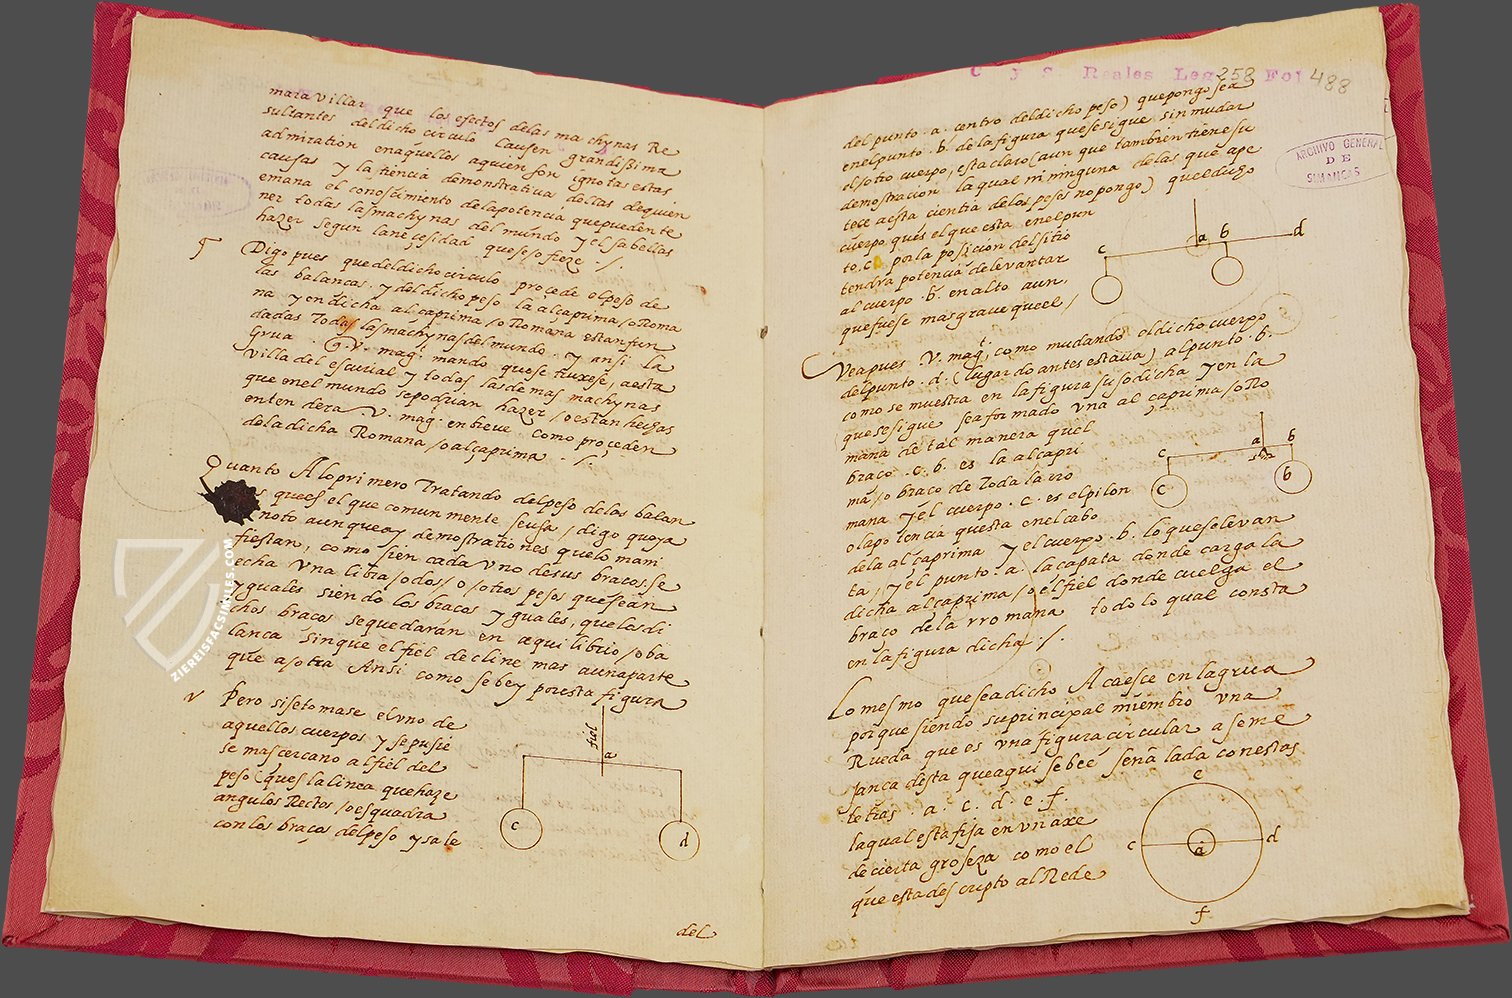 maravillar que los efectos delas machynas Re
sultantes deldicho circulo causen grandissima
admiration enaquellos aquien son ignotas estas
causas y la sciencia demonstrativa dellas dequien
emana el conoscimiento delapotencia quepuedente
ner todas lasmachynas del mundo y el sabellas
hazer segun lanecesidad queseofreze ./.
Digo pues que deldicho circulo procede elpeso de
las balancas . y deldicho peso la alçaprima /o Roma
na y en dicha alçaprima /o Romana estan fun
dadas Todas lasmachynas del mundo . y ansi la
Grua . q. V. mag. mando quese truxese, aesta
villa del escurial y todas lasdemas machynas
que enel mundo sepodrian hazer /o estan hechas
entendera V. mag. en breve como proceden
dela dicha Romana /o alçaprima ./.
Quanto A loprimero Tratando delpeso delas balan
ques el que comunmente seusa / digo quoya
noto aunqueay demostrationes quelo mani
fiestan, como sien cada uno desus bracos se
echa una libra /o dos / o /otros pesos quesean
yguales siendo los bracos yguales, quelosdi
chos bracos sequedaran en aequilibrio /o ba
lanca sinque elfiel decline mas aunaparte
que aotra Ansi como se bey poresta figura
Pero sisetomase eluno de
aquellos cuerpos y sepusie
se mascercano alfiel del
peso (ques lalinea quehaze
angulos Rectos /o esquadra
con los braços delpeso y sale
fiel
a
c
d
del
C y S Reales Leg 258 Fol 488
ARCHIVO GENERAL
DE
SIMANCAS
del punto . a . centro deldicho peso) quepongo sea
enelpunto . b. dela figura quesesigue sinmudar
elotro cuerpo, esta claro (aun que tambien tiene su
demostracion laqual ni ninguna delas que ape
tece aesta cientia delos pesos nopongo) queldicho
cuerpo ques el que esta enelpun
to. c. por la posicion delsitio
tendra potencia delevantar
al cuerpo . b. en alto aun
quefuese masgrave queel /
c
a
b
d
Veapues V. mag.t como mudando eldicho cuerpo
delpunto . d. (lugar do antes estaua) alpunto . b.
como se muestra en la figura susodicha y en la
quesesigue sea formado una alçaprima /o Ro
mana de tal manera quel
braço . c. b. es la alçapri
ma /o braço de Toda la rro
mana y el cuerpo . c. es elpilon
o lapotencia questa enelcabo
dela alçaprima y el cuerpo . b. lo queselevan
ta, y el punto . a. la capata donde carga la
dicha alçaprima /o elfiel donde cuelga el
braço dela rromana todo lo qual consta
en la figura dicha ./.
c
a
b
c
b
Lo mesmo quesea dicho Acaesce en lagrua
porque siendo suprincipal miembro una
Rueda que es una figura circular a seme
janca desta queaqui se bee señalada conestas
letras . a. c. d. e. f.
laqual esta fija en un axe
decierta groseza como el
que esta descripto alRede
e
c
a
d
f
ZIEREISFACSIMILES.COM